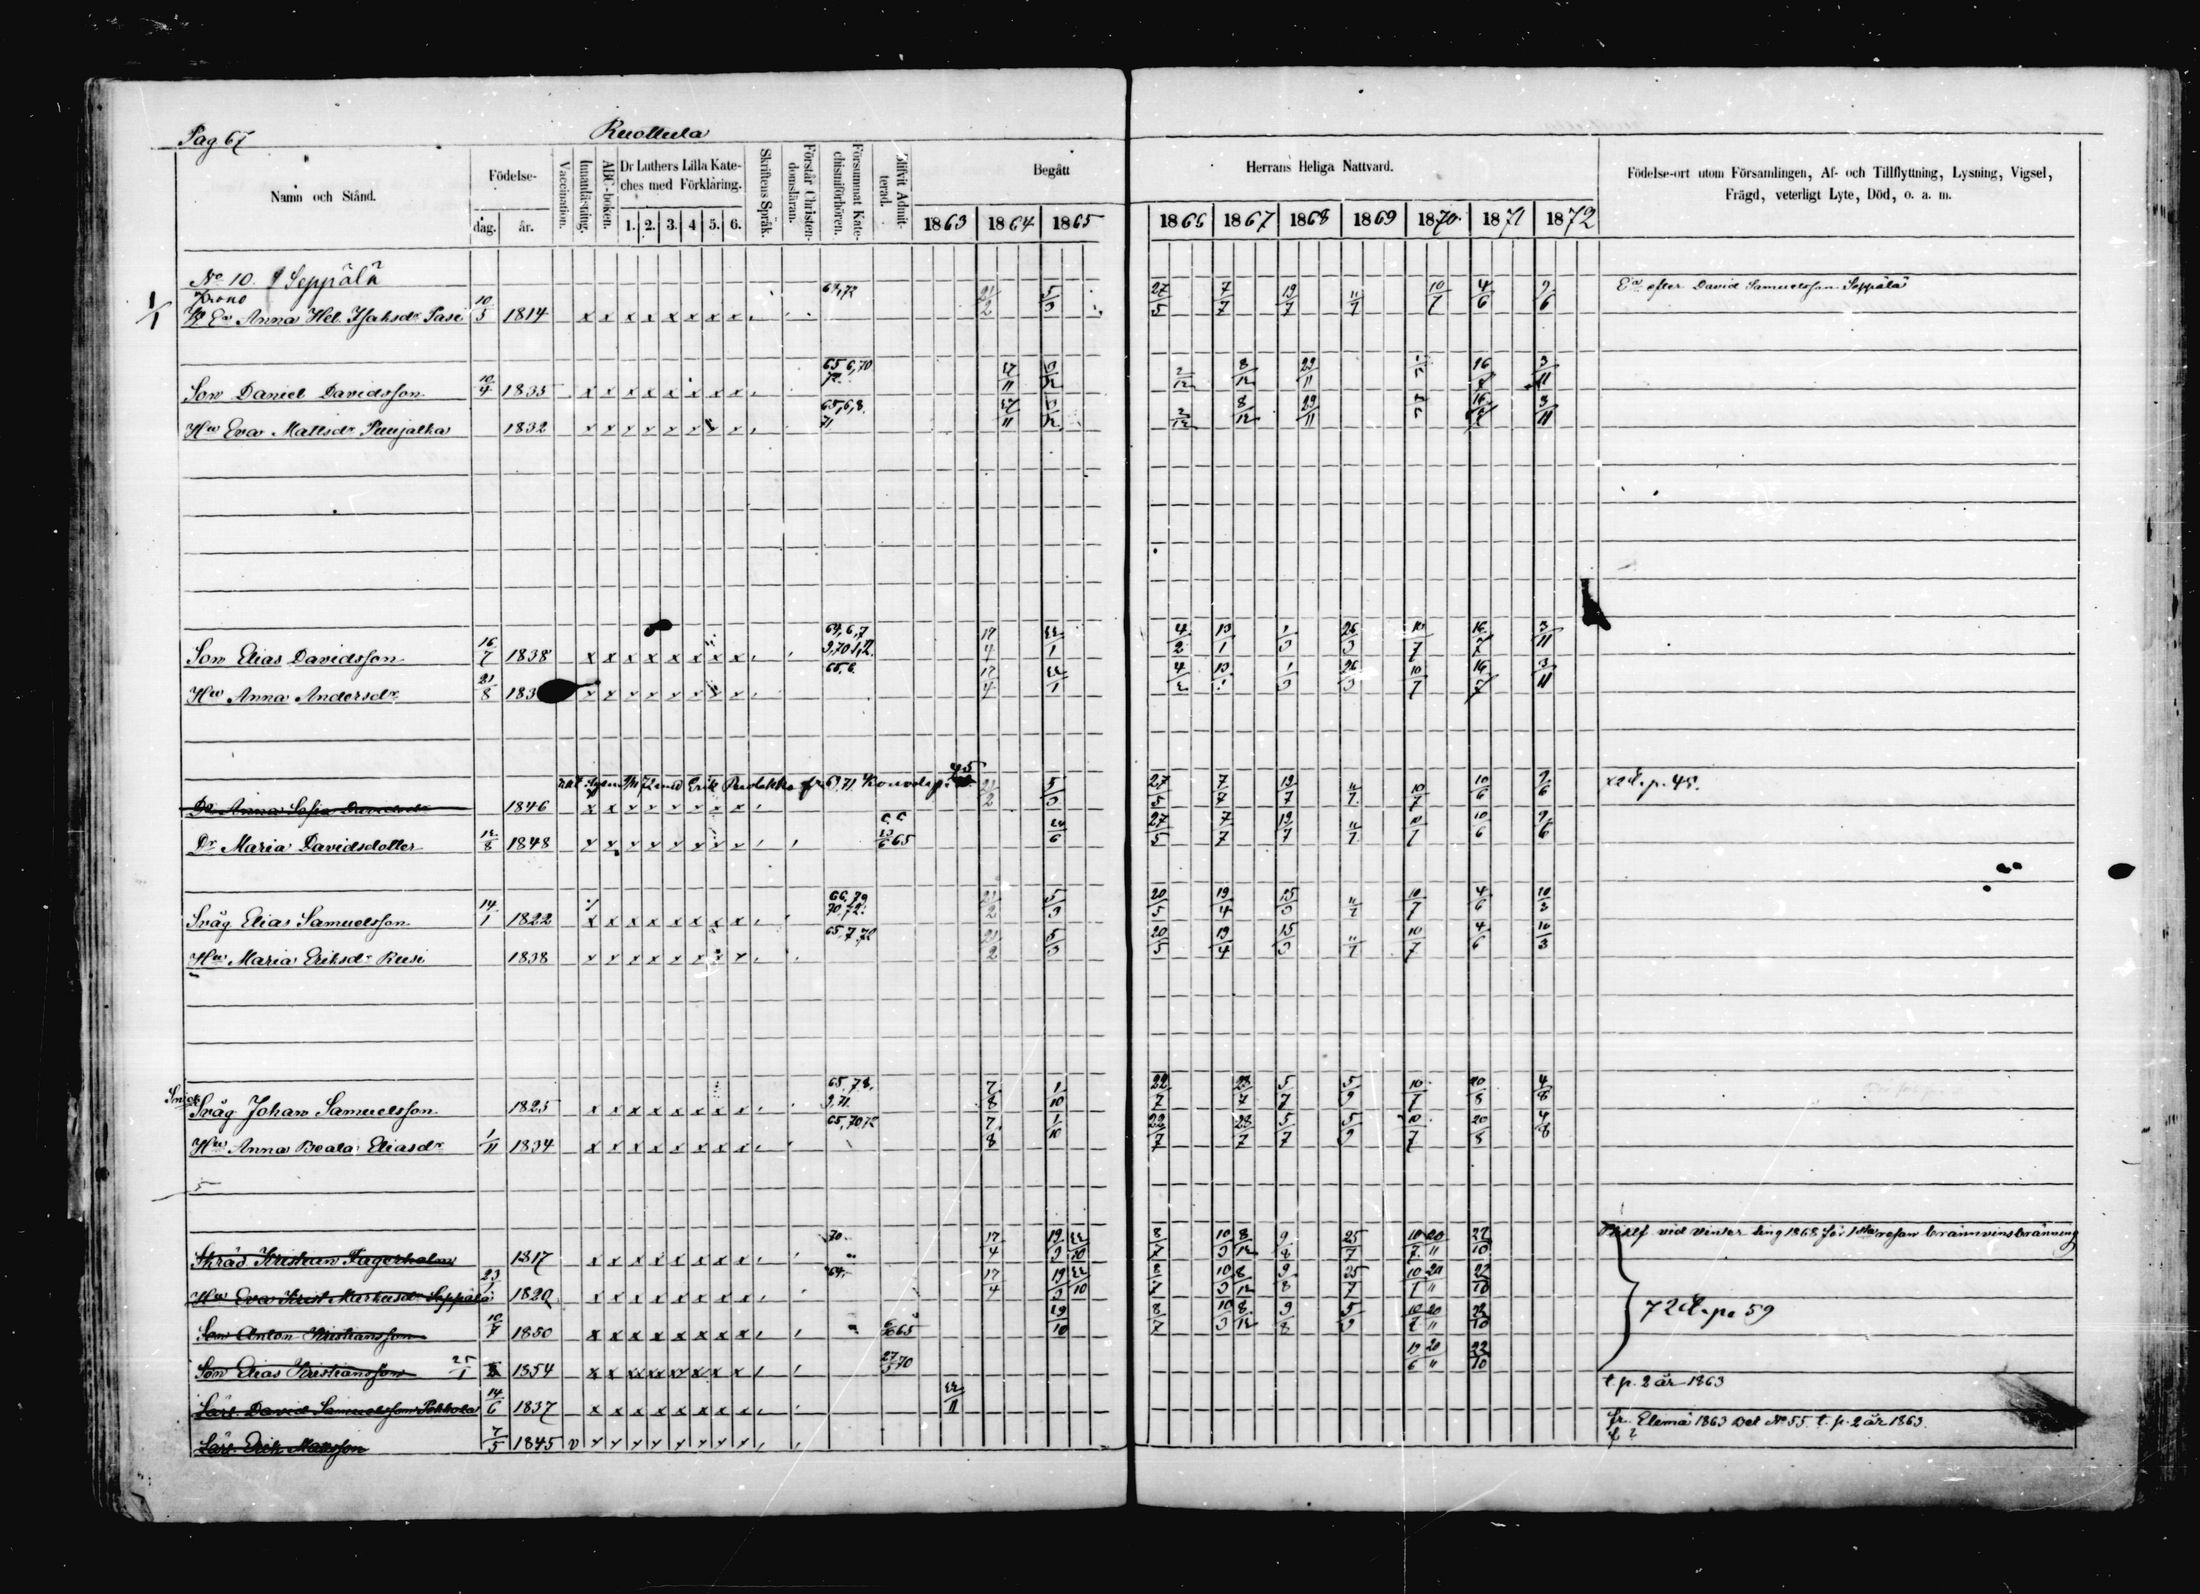 Pag 67
Ruollula
Namn och Stånd.
Födelse-
dag. år.
Vaccination.
Innanläsning.
ABC-boken.
Dr Luthers Lilla Kate-
ches med Förklaring.
1. 2. 3. 4 5. 6.
Skriftens Språk.
Förstår Christen-
domsläran.
Försummat Kate-
chismiförhören.
Blifvit Admit-
terad.
Begått
Herrans Heliga Nattvard.
1863 1864 1865
1866 1867 1868 1869 1870 1871 1872
Födelse-ort utom Församlingen, Af- och Tillflyttning, Lysning, Vigsel,
Frägd, veterligt Lyte, Död, o. a. m.
No 10. Seppälä
Krono
1/1 Ea Anna Hel. Isaksdr Pasi 10/5 1814 x x x x x x x x 64,72 21/2 5/3 27/5 7/7 19/7 11/7 10/7 4/6 9/6 Ea efter David Samuelsson Seppälä
Son Daniel Davidsson 10/4 1835 x x x x x x x x 65 6,70 72. 27/11 3/12 2/12 8/12 29/11 16/7 3/11
Hu Eva Mattsdr Puujalka 1832 65,6,8. 71 27/11 3/12 2/12 8/12 29/11 16/7 3/11
Son Elias Davidsson 16/7 1838 x x x x x x x x 64,6,7 9,70 1,2. 17/4 22/1 4/2 13/1 1/3 26/3 10/7 16/7 3/11
Hu Anna Andersdr 21/8 183 65,6. 17/4 22/1 4/2 13/1 1/3 26/3 10/7 16/7 3/11
Dr Anna Sofia Davidsdr 1846 x x x x x x x x 21/2 5/3 27/5 7/7 19/7 11/7 10/7 10/6 9/6 72 d. p. 45.
Dr Maria Davidsdotter 12/8 1848 13/6 65 24/6 27/5 7/7 19/7 11/7 10/7 10/6 9/6
Svåg Elias Samuelsson 14/1 1822 x x x x x x x x 66,79 70,72. 21/2 5/3 20/5 19/4 15/3 11/7 10/7 4/6 10/3
Hu Maria Eriksdr Rusi 1838 65,7,72 21/2 5/3 20/5 19/4 15/3 11/7 10/7 4/6 10/3
Svåg Johan Samuelsson 1825 x x x x x x x x 65,78. 9,71. 7/8 1/10 22/7 28/7 5/7 5/9 10/7 20/8 4/8
Hu Anna Beata Eliasdr 1/11 1834 x x x x x x x x 65,7072 7/8 1/10 22/7 28/7 5/7 5/9 10/7 20/8 4/8
5
Skräd. Kristian Fagerholm 1817 x x x x x x x x 70. 17/4 19/3 22/10 8/7 10/3 8/12 9/8 25/7 10/7 20/11 22/10 vid vinter ting 1868 för 1sta resan brännvinsbränning
Hu Eva Krist Markusdr Seppälä 23/1 1820 x x x x x x x x 64. 17/4 19/3 22/10 8/7 10/3 8/12 9/8 25/7 10/7 20/11 22/10
Son Anton Kristiansson 10/7 1850 x x x x x x x x 6/10 65 29/10 8/7 10/3 8/12 9/8 5/9 10/7 20/11 22/10 72 d. p. 59
Son Elias Kristiansson 25/1 1854 27/5 70 19/6 20/11 22/10
Lärl David Samuelsson Pekkola 14/6 1837 x x x x x x x x 22/11 t. p. 2 år 1863
Lärl Erik Mattsson 7/5 1845 v fr. Elemä 1863 Bet No 55. t. p. 2 år 1863.